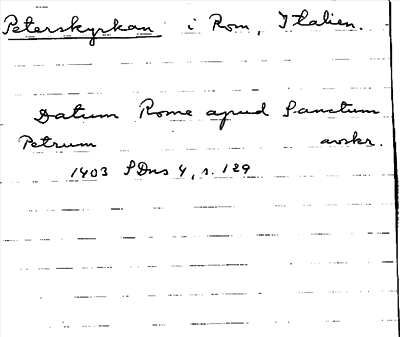 Peterskyrkan i Rom, Italien.
Datum Rome apud Sanctum
Petrum avskr.
1403 SDns 4, s. 129